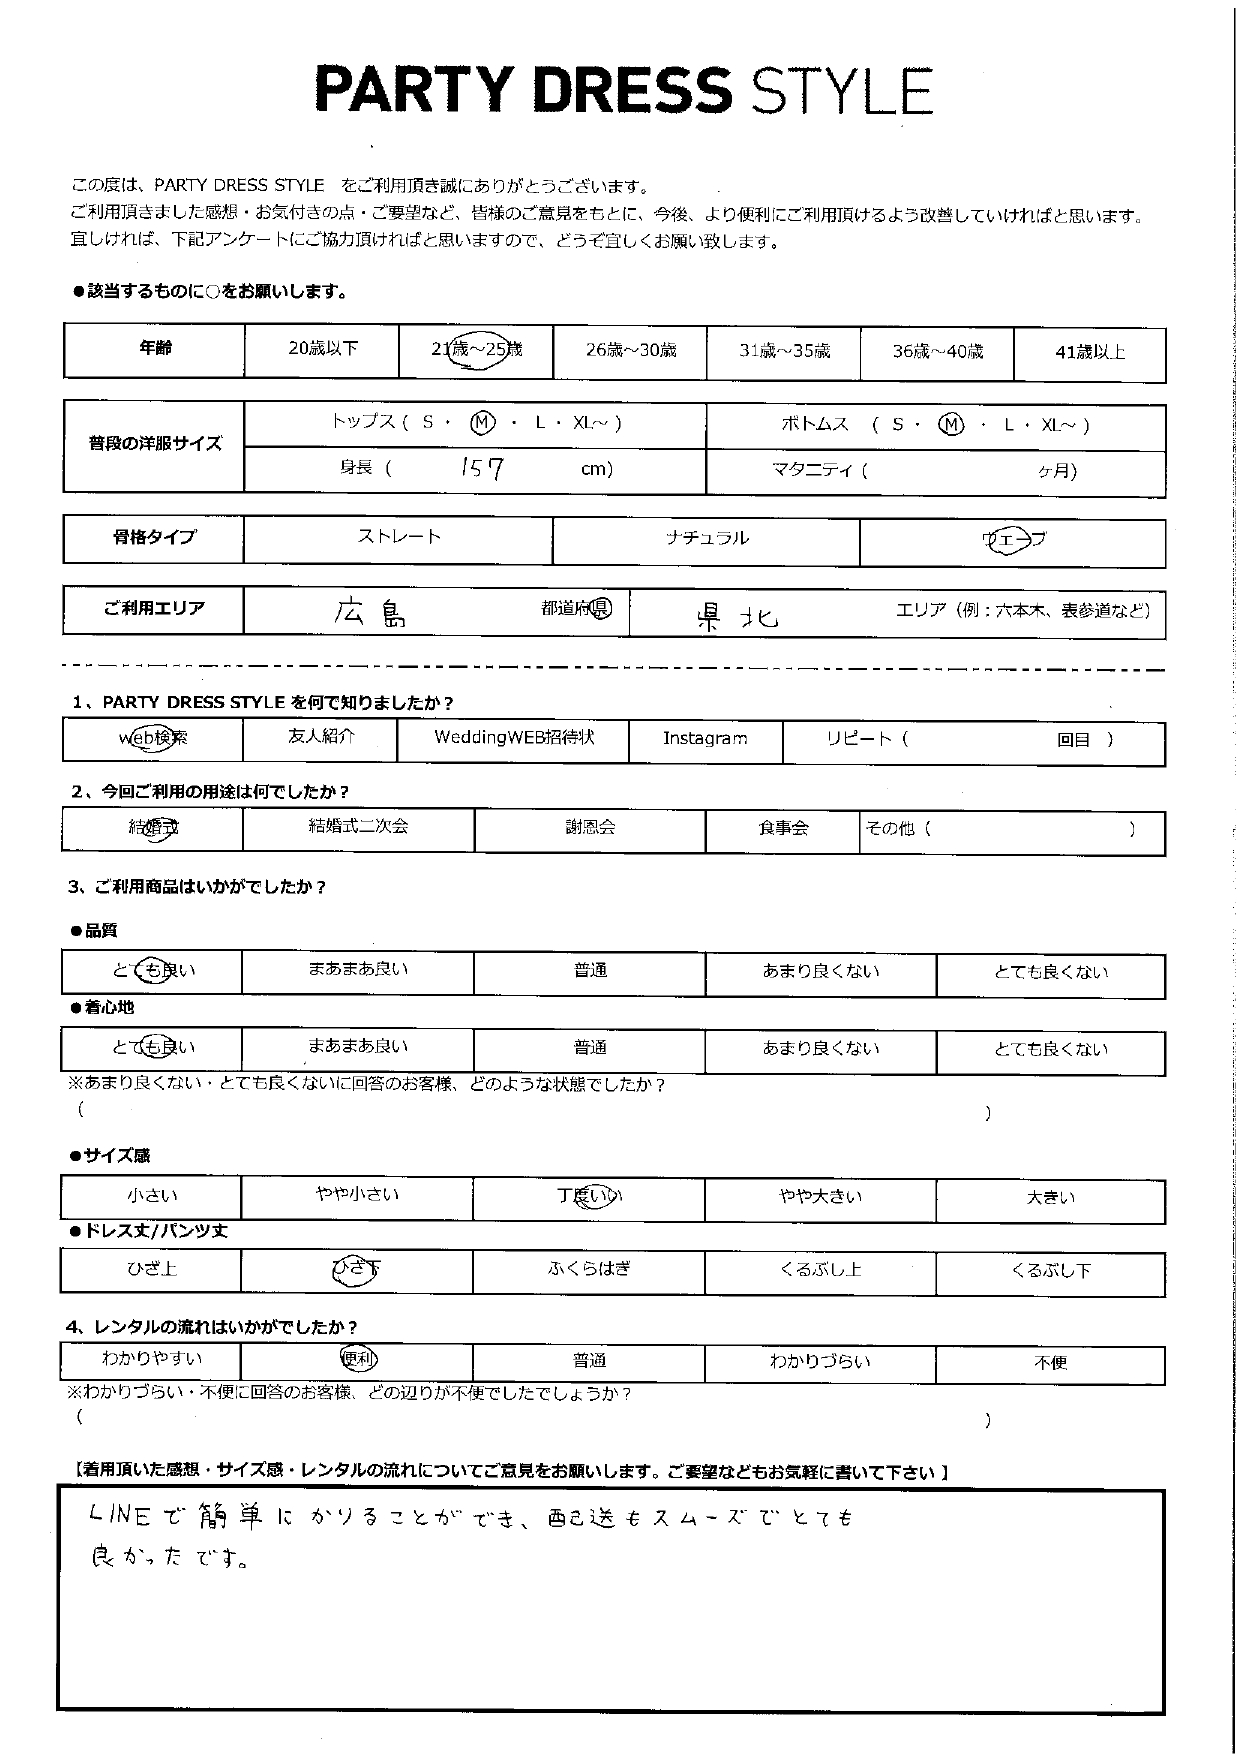 PARTY DRESS STYLE
この度は、PARTY DRESS STYLE　をご利用頂き誠にありがとうございます。
ご利用頂きました感想・お気付きの点・ご要望など、皆様のご意見をもとに、今後、より便利にご利用頂けるよう改善していければと思います。
宜しければ、下記アンケートにご協力頂ければと思いますので、どうぞ宜しくお願い致します。
●該当するものに○をお願いします。
年齢 20歳以下 21歳～25歳 26歳～30歳 31歳～35歳 36歳～40歳 41歳以上
普段の洋服サイズ トップス ( S ・ M ・ L ・ XL～ ) ボトムス ( S ・ M ・ L ・ XL～ )
身長 ( 157 cm) マタニティ ( ヶ月)
骨格タイプ ストレート ナチュラル ウェーブ
ご利用エリア 広島 都道府県 県北 エリア（例：六本木、表参道など）
1、PARTY DRESS STYLE を何で知りましたか？
web検索 友人紹介 WeddingWEB招待状 Instagram リピート ( 回目 )
2、今回ご利用の用途は何でしたか？
結婚式 結婚式二次会 謝恩会 食事会 その他 ( )
3、ご利用商品はいかがでしたか？
●品質
とても良い まあまあ良い 普通 あまり良くない とても良くない
●着心地
とても良い まあまあ良い 普通 あまり良くない とても良くない
※あまり良くない・とても良くないに回答のお客様、どのような状態でしたか？
( )
●サイズ感
小さい やや小さい 丁度いい やや大きい 大きい
●ドレス丈/パンツ丈
ひざ上 ひざ下 ふくらはぎ くるぶし上 くるぶし下
4、レンタルの流れはいかがでしたか？
わかりやすい 便利 普通 わかりづらい 不便
※わかりづらい・不便に回答のお客様、どの辺りが不便でしたでしょうか？
( )
【着用頂いた感想・サイズ感・レンタルの流れについてご意見をお願いします。ご要望などもお気軽に書いて下さい 】
LINEで簡単にかりることができ、配送もスムーズでとても
良かったです。